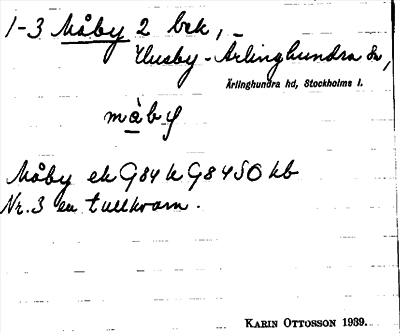 1-3 Måby 2 bek,
Husby-Ärlinghundra sn,
Ärlinghundra hd, Stockholms l.
må̀by
Måby ek G84 k G8450 kb
Nr. 3 en tullkvarn.
KARIN OTTOSSON 1939.